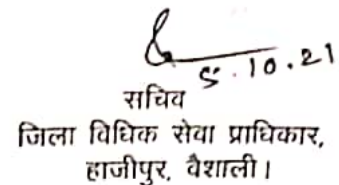 5.10.21
सचिव
जिला विधिक सेवा प्राधिकार,
हाजीपुर, वैशाली।